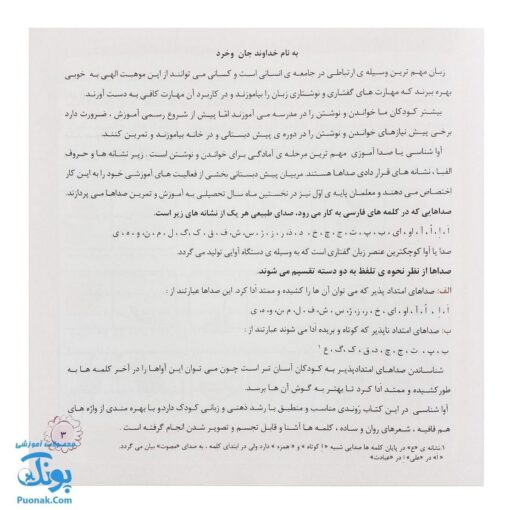 به نام خداوند جان وخرد
زبان مهم ترین وسیله ی ارتباطی در جامعه ی انسانی است و کسانی می توانند از این موهبت الهی به خوبی
بهره ببرند که مهارت های گفتاری و نوشتاری زبان را بیاموزند و در کاربرد آن مهارت کافی به دست آورند.
بیشتر کودکان ما خواندن و نوشتن را در مدرسه می آموزند امّا پیش از شروع رسمی آموزش ، ضرورت دارد
برخی پیش نیازهای خواندن و نوشتن را در دوره ی پیش دبستانی و در خانه بیاموزند و تمرین کنند.
آوا شناسی یا صدا آموزی مهم ترین مرحله ی آمادگی برای خواندن و نوشتن است . زیر نشانه ها و حروف
الفبا ، نشانه های قرار دادی صداها هستند. مربیان پیش دبستانی بخشی از فعالیت های آموزشی خود را به این کار
اختصاص می دهند و معلمان پایه ی اوّل نیز در نخستین ماه سال تحصیلی به آموزش و تمرین صداها می پردازند.
صداهایی که در کلمه های فارسی به کار می رود، صدای طبیعی هر یک از نشانه های زیر است.
اَ ، اِ ، اُ ، آ ، او ، ای ، ب ، پ ، ت ، ج ، چ ، خ ، د ، ذ ، ر ، ز ، ژ ، س ، ش ، ف ، ق ، ک ، گ ، ل ، م ، ن ، و ، ه ، ی
صدا یا آوا کوچکترین عنصر زبان گفتاری است که به وسیله ی دستگاه آوایی تولید می گردد.
صداها از نظر نحوه ی تلفظ به دو دسته تقسیم می شوند.
الف: صداهای امتداد پذیر که می توان آن ها را کشیده و ممتد ادا کرد. این صداها عبارتند از :
اَ ، اِ ، اُ ، آ ، او ، ای ، خ ، ر ، ز ، ژ ، س ، ش ، ف ، ل ، م ، ن ، و ، ه ، ی
ب: صداهای امتداد ناپذیر که کوتاه و بریده ادا می شوند عبارتند از :
ب ، پ ، ت ، ج ، چ ، د ، ق ، ک ، گ ، ع ۱
شناساندن صداهای امتدادپذیر به کودکان آسان تر است چون می توان این آواها را در آخر کلمه ها به
طور کشیده و ممتد ادا کرد تا بهتر به گوش آن ها برسد.
آوا شناسی در این کتاب رَوندی مناسب و منطبق با رشد ذهنی و زبانی کودک دارد و با بهره مندی از واژه های
هم قافیه ، شعرهای روان و ساده ، کلمه ها آشنا و قابل تجسم و تصویر شدن انجام گرفته است .
۱.نشانه ی «ع» در پایان کلمه ها صدایی شبیه «اَ کوتاه » و « همزه » دارد ولی در ابتدای کلمه ، به صدای «مصوت» بیان می گردد.
« اَ» در «علی» اِ در «عبادت»
۳
محصولات آموزشی
پونک
Puonak.Com